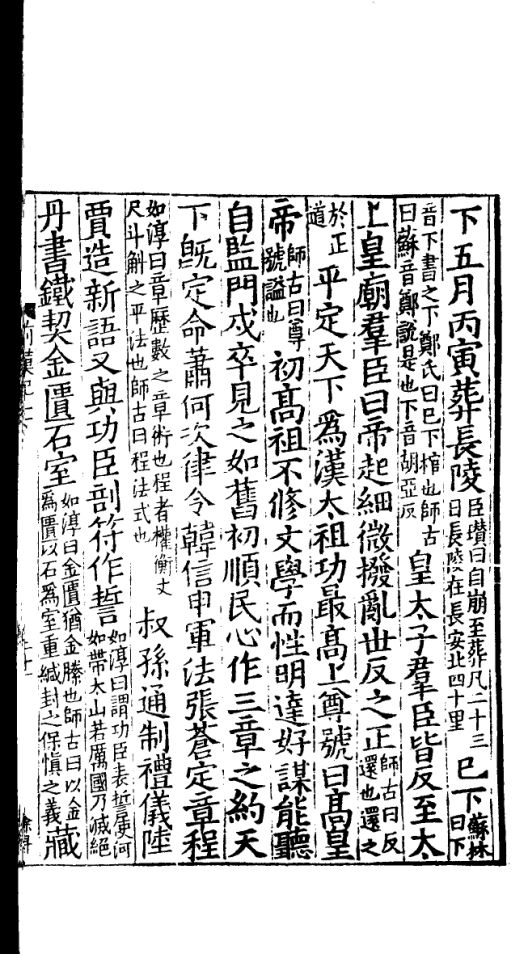 下五月丙寅葬長陵臣瓚曰自崩至葬凡二十三日長陵在長安北四十里巳下蘇林曰下
音下書之下鄭氏曰巳下棺也師古曰蘇音鄭說是也下音胡亞反皇太子羣臣皆反至太
上皇廟羣臣曰帝起細微撥亂世反之正師古曰反還也還之
於正道平定天下爲漢太祖功最高上尊號曰高皇
帝師古曰尊號謚也初高祖不修文學而性明達好謀能聽
自監門戍卒見之如舊初順民心作三章之約天
下旣定命蕭何次律令韓信申軍法張蒼定章程
如淳曰章歷數之章術也程者權衡丈尺斗斛之平法也師古曰程法式也叔孫通制禮儀陸
賈造新語又與功臣剖符作誓如淳曰謂功臣表誓使河如帶大山若厲國乃滅絕
丹書鐵契金匱石室如淳曰金匱猶金縢也師古曰以金爲匱以石爲室重緘封之保愼之義藏